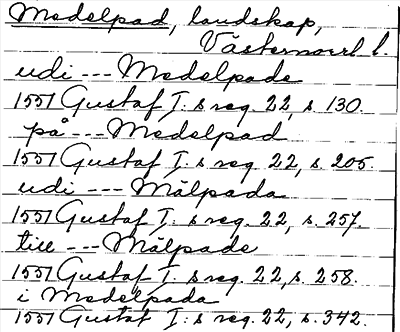 Medelpad, landskap,
Västernorrl l.
udi --- Medelpade
1551 Gustaf I:s reg. 22, s. 130.
på --- Medelpad
1551 Gustaf I:s reg. 22, s. 205.
udi --- Mälpada
1551 Gustaf I:s reg. 22, s. 257.
till --- Mälpade
1551 Gustaf I:s reg. 22, s. 258.
i Medelpada
1551 Gustaf I:s reg. 22, s. 342.